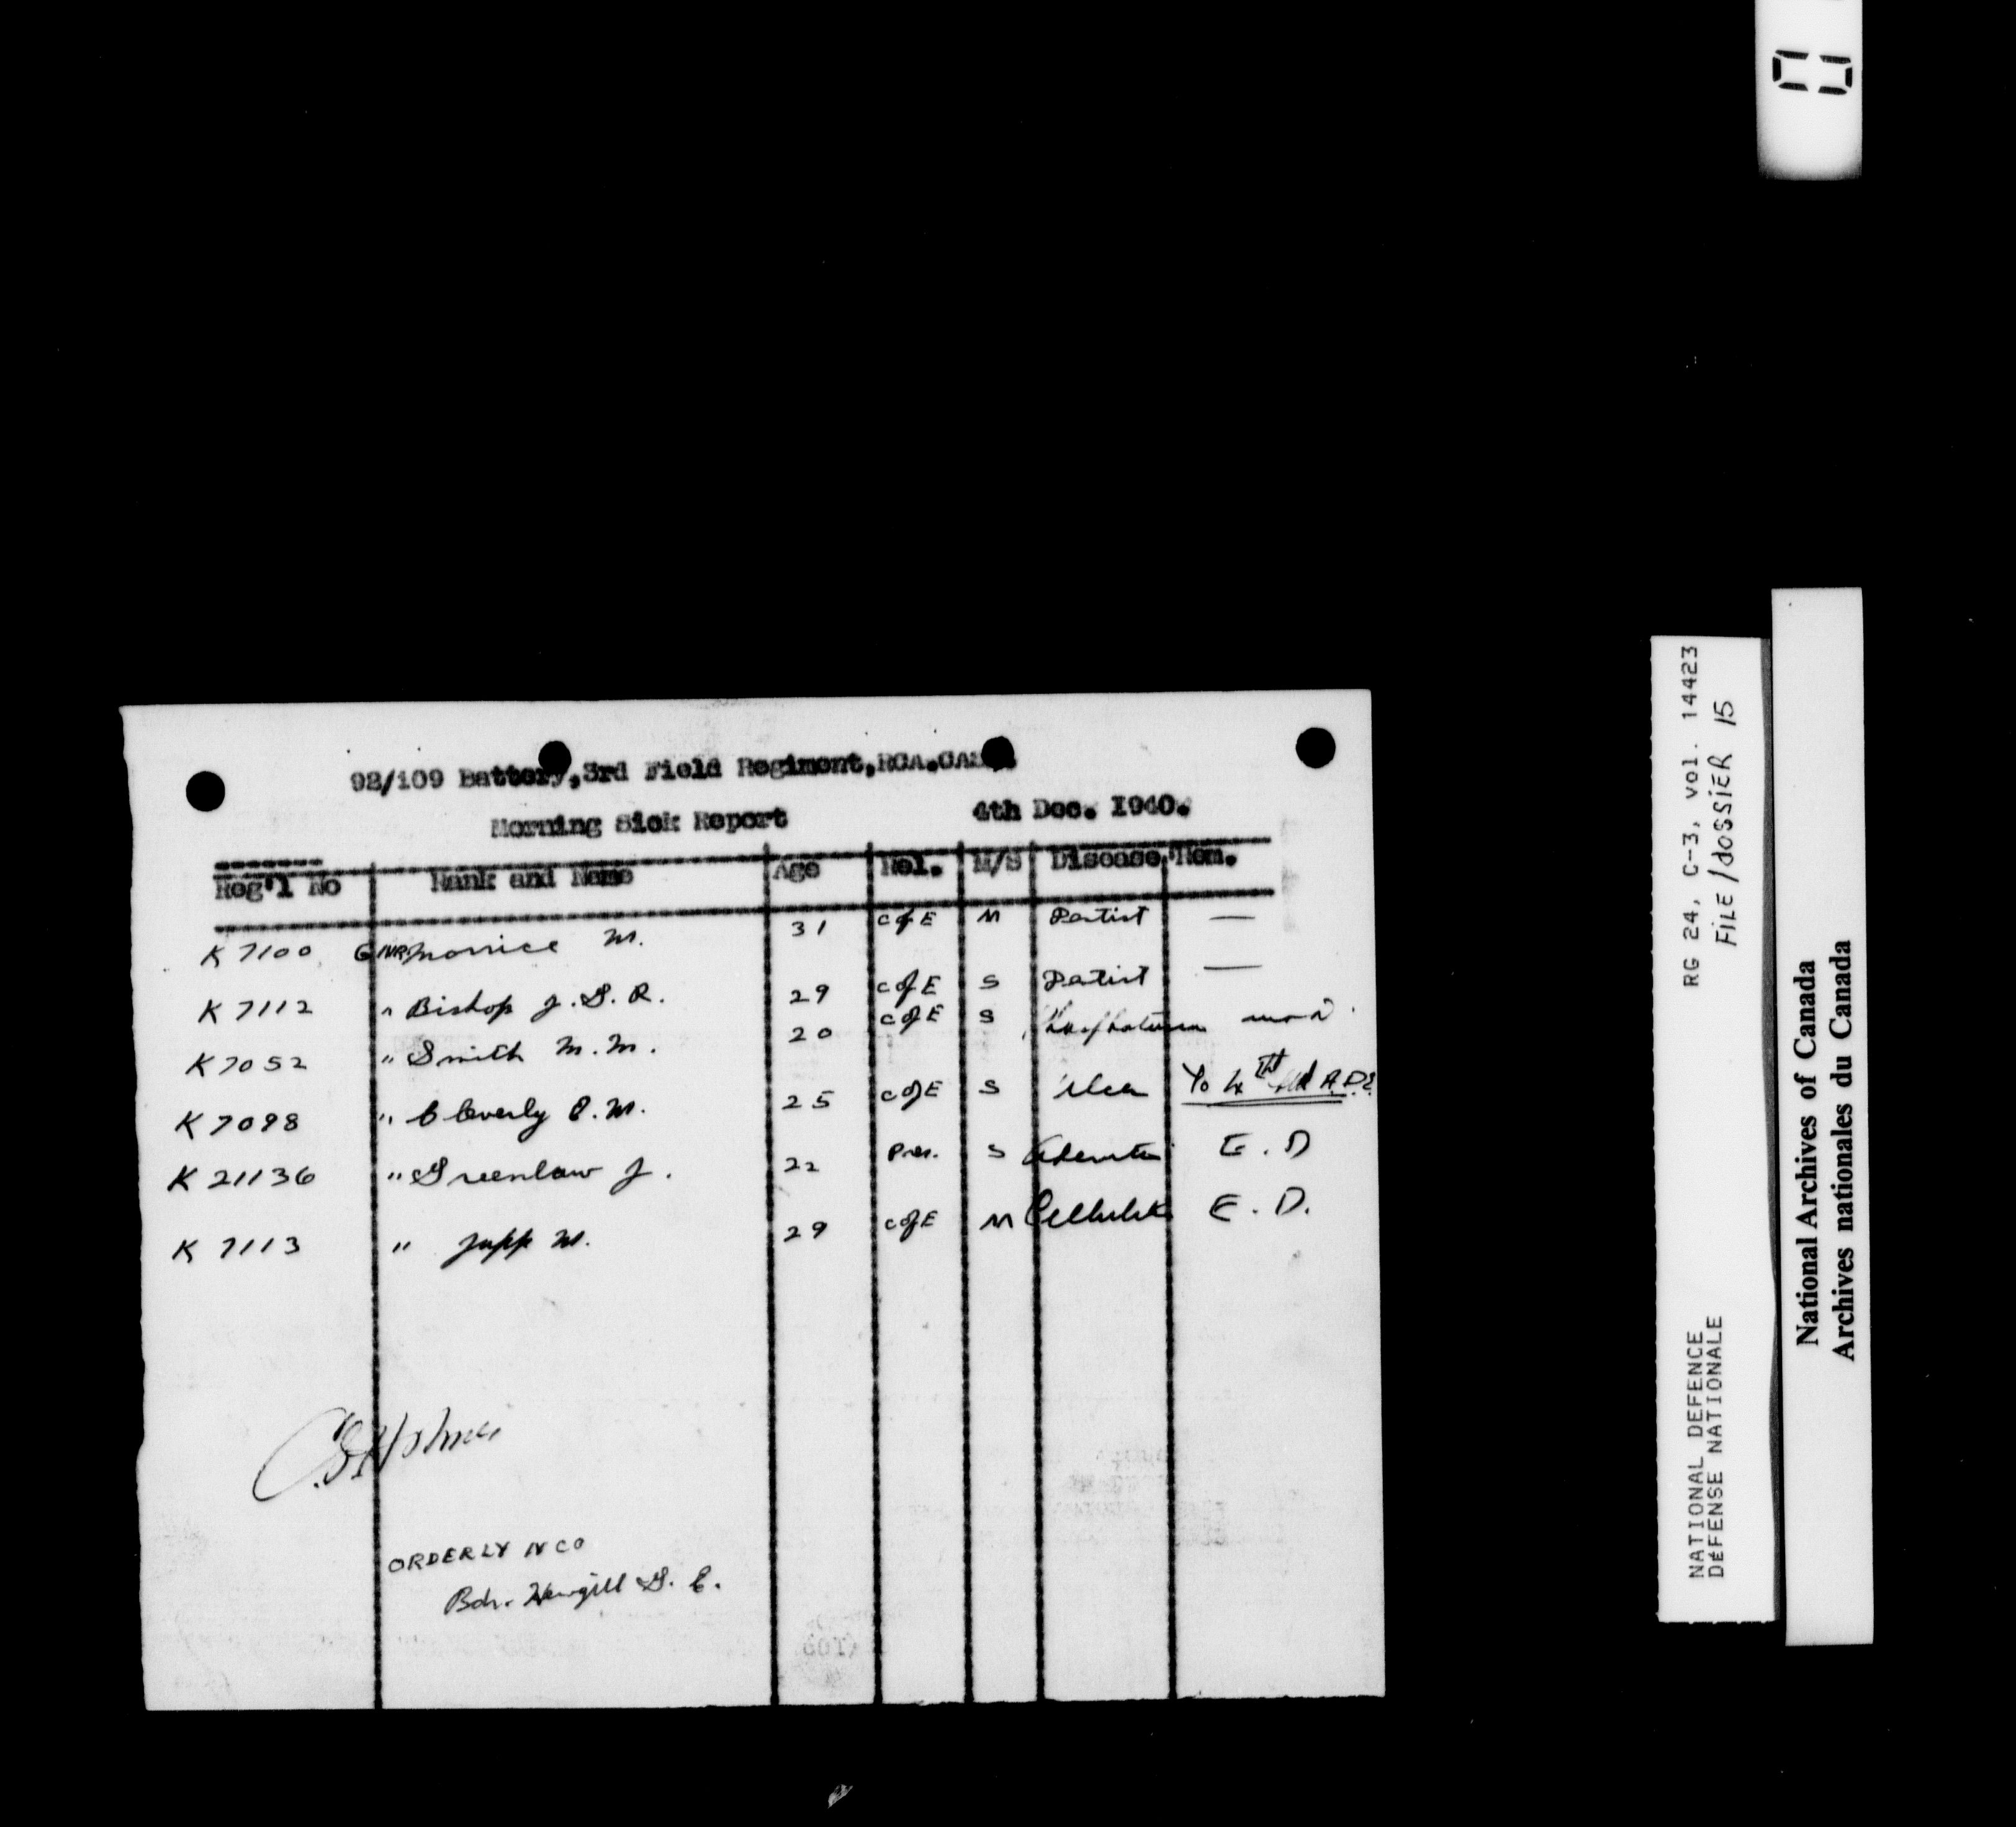 92/109 Battery,3rd Field Regiment,RCA.
Morning Sick Report 4th Dec. 1940.
Reg'l No Rank and Name Age Rel. M/S Disease, Rem.
K 7100 GNR Morrice M. 31 C of E M Dentist —
K 7112 " Bishop J. G. R. 29 C of E S Dentist —
K 7052 " Smith M. M. 20 C of E S
K 7098 " Cleverly E. M. 25 C of E S Ulcer To 4th A.D.S
K 21136 " Greenlaw J. 22 Pres. S E. D
K 7113 " Jupp W. 29 C of E M Cellulitis E. D.
ORDERLY NCO
Bdr. Hewgill G. C.
RG 24, C-3, vol. 14423
FILE/dossiER 15
NATIONAL DEFENCE
DÉFENSE NATIONALE
National Archives of Canada
Archives nationales du Canada